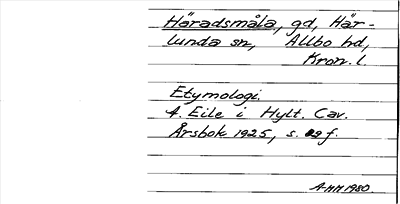 Häradsmåla, gd, Här-
lunda sn, Allbo hd,
Kron. l.
Etymologi.
A. Eile i Hylt. Cav.
Årsbok 1925, s. 29 f.
AMH 1980.